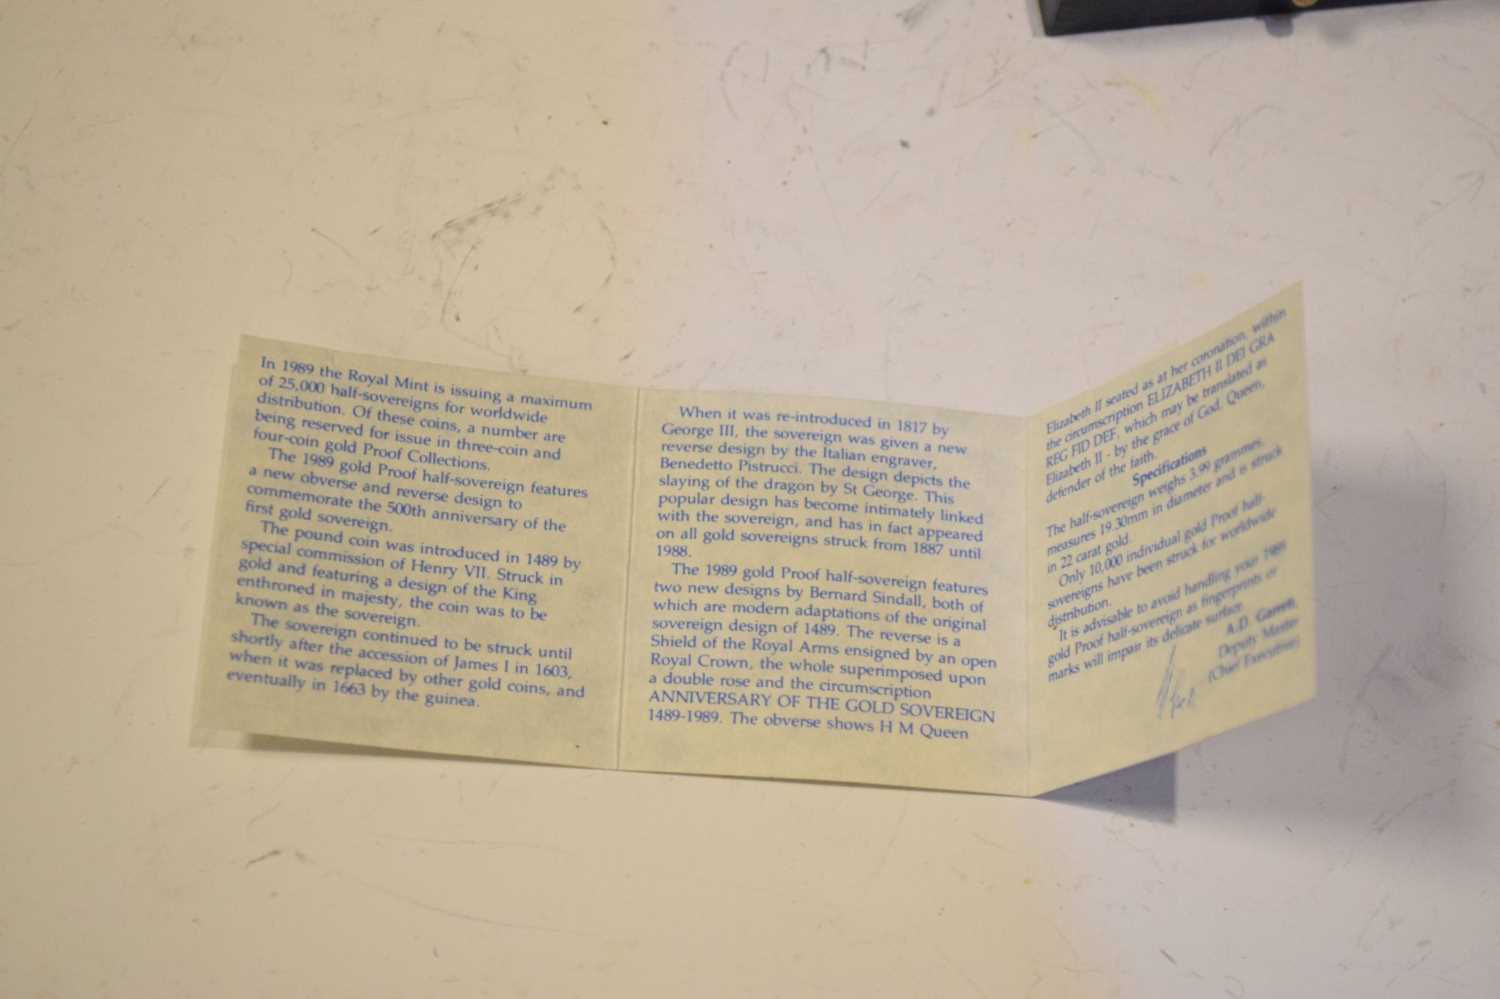 In 1989 the Royal Mint is issuing a maximum
of 25,000 half-sovereigns for worldwide
distribution. Of these coins, a number are
being reserved for issue in three-coin and
four-coin gold Proof Collections.
The 1989 gold Proof half-sovereign features
a new obverse and reverse design to
commemorate the 500th anniversary of the
first gold sovereign.
The pound coin was introduced in 1489 by
special commission of Henry VII. Struck in
gold and featuring a design of the King
enthroned in majesty, the coin was to be
known as the sovereign.
The sovereign continued to be struck until
shortly after the accession of James I in 1603,
when it was replaced by other gold coins, and
eventually in 1663 by the guinea.
When it was re-introduced in 1817 by
George III, the sovereign was given a new
reverse design by the Italian engraver,
Benedetto Pistrucci. The design depicts the
slaying of the dragon by St George. This
popular design has become intimately linked
with the sovereign, and has in fact appeared
on all gold sovereigns struck from 1887 until
1988.
The 1989 gold Proof half-sovereign features
two new designs by Bernard Sindall, both of
which are modern adaptations of the original
sovereign design of 1489. The reverse is a
Shield of the Royal Arms ensigned by an open
Royal Crown, the whole superimposed upon
a double rose and the circumscription
ANNIVERSARY OF THE GOLD SOVEREIGN
1489-1989. The obverse shows H M Queen
Elizabeth II seated as at her coronation, within
the circumscription ELIZABETH II DEI GRA
REG FID DEF, which may be translated as
Elizabeth II - by the grace of God, Queen,
defender of the faith.
Specifications
The half-sovereign weighs 3.99 grammes,
measures 19.30mm in diameter and is struck
in 22 carat gold.
Only 10,000 individual gold Proof half-
sovereigns have been struck for worldwide
distribution.
It is advisable to avoid handling your 1989
gold Proof half-sovereign as fingerprints or
marks will impair its delicate surface.
A.D. Garrett,
Deputy Master
(Chief Executive)